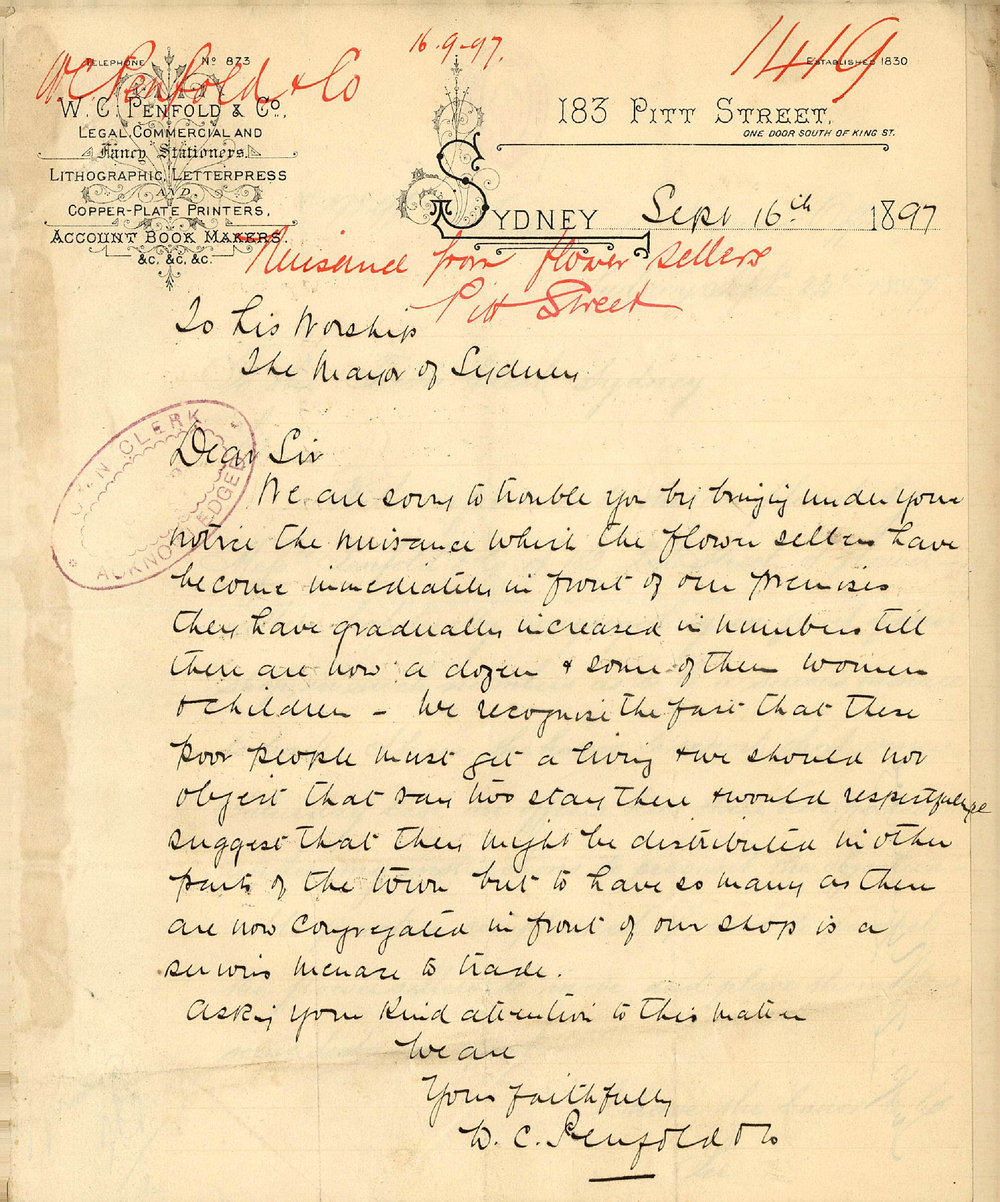 16-9-97.
1419
W C Penfold & Co
TELEPHONE No 873
ESTABLISHED 1830
W. C. PENFOLD & Co,
LEGAL, COMMERCIAL AND
Fancy Stationers,
LITHOGRAPHIC, LETTERPRESS
AND
COPPER-PLATE PRINTERS,
ACCOUNT BOOK MAKERS.
&c, &c, &c.
183 PITT STREET,
ONE DOOR SOUTH OF KING ST.
SYDNEY Sept 16th 1897
Nuisance from flower sellers
Pitt Street
To His Worship
The Mayor of Sydney
TOWN CLERK
ACKNOWLEDGED
Dear Sir
We are sorry to trouble you by bringing under your
notice the nuisance which the flower sellers have
become immediately in front of our premises
they have gradually increased in numbers till
there are now a dozen & some of them women
& children – We recognise the fact that these
poor people must get a living & we should not
object that say two stay there & would respectfully
suggest that they might be distributed in other
parts of the town but to have so many as there
are now congregated in front of our shop is a
serious menace to trade.
Asking your kind attention to this matter
We are
Yours faithfully
W. C. Penfold & Co